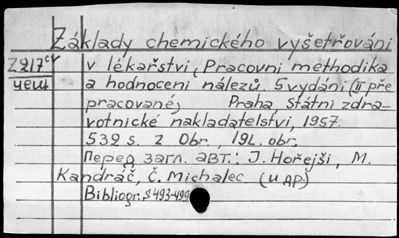 Základy chemického vyšetřování
Z217cv v lékařství, Pracovní methodika
чеш a hodnocení nálezů. 5 vydání (II pře
pracované) Praha Státní zdra-
votnické nakladatelství, 1957.
539 s. 2 Obr., 19L. obr.
Перед загл. авт.: J. Hořejši, M.
Kandráč, Č. Michalec (и др.)
Bibliogr. s 493-499